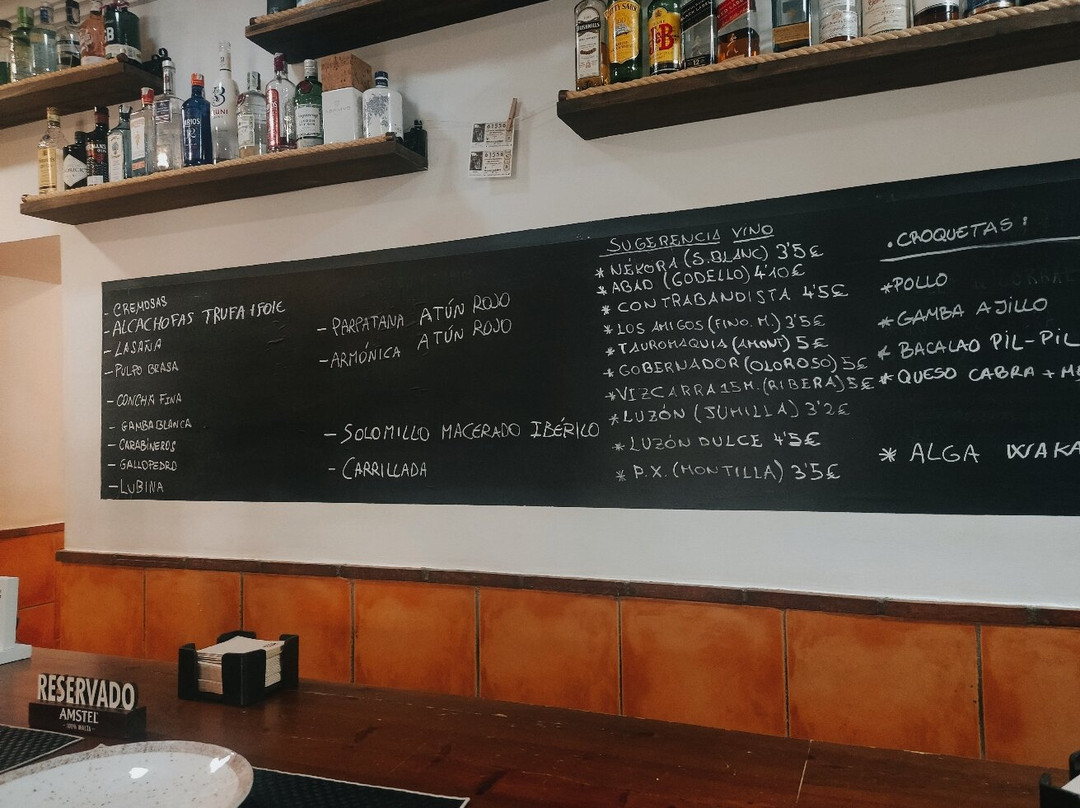 J&B
61554
61554
- CREMOSAS
- ALCACHOFAS TRUFA
- LASAÑA
- PULPO BRASA
- CONCHA FINA
- GAMBA BLANCA
- CARABINEROS
- GALLOPEDRO
- LUBINA
- PARPATANA ATÚN ROJO
- ARMÓNICA ATÚN ROJO
- SOLOMILLO MACERADO IBÉRICO
- CARRILLADA
SUGERENCIA VINO
* NÉKORA (S.BLANC) 3'5€
* ABAD (GODELLO) 4'10€
* CONTRABANDISTA 4'5€
* LOS AMIGOS (FINO. M.) 3'5€
* TAUROMAQUIA (AMONT) 5€
* GOBERNADOR (OLOROSO) 5€
* VIZCARRA 15M. (RIBERA) 5€
* LUZÓN (JUMILLA) 3'2€
* LUZÓN DULCE 4'5€
* P.X. (MONTILLA) 3'5€
. CROQUETAS:
* POLLO
* GAMBA AJILLO
* BACALAO PIL-PIL
* QUESO CABRA +
* ALGA WAKA
RESERVADO
AMSTEL
100% MALTA